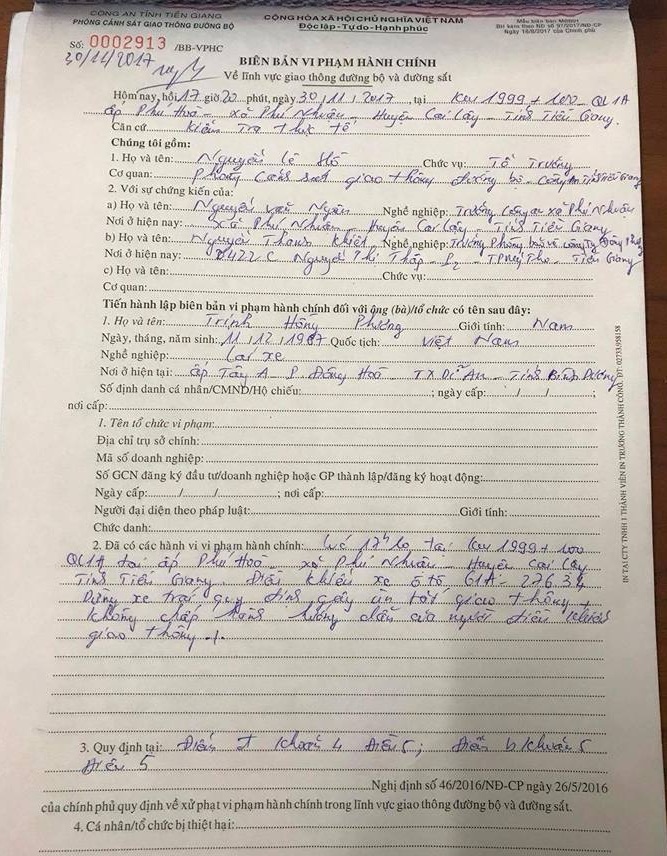 CÔNG AN TỈNH TIỀN GIANG
PHÒNG CẢNH SÁT GIAO THÔNG ĐƯỜNG BỘ
CỘNG HÒA XÃ HỘI CHỦ NGHĨA VIỆT NAM
Độc lập - Tự do - Hạnh phúc
Mẫu biên bản
BH kèm theo NĐ số 97/2017/NĐ-CP
Ngày 18/8/2017 của Chính phủ
Số: 0002913 /BB-VPHC
30/11/2017
BIÊN BẢN VI PHẠM HÀNH CHÍNH
Về lĩnh vực giao thông đường bộ và đường sắt
Hôm nay, hồi 17 giờ 20 phút, ngày 30/11/2017, tại Km 1999 + 100 - QL1A
ấp Phú Hoà - xã Phú Nhuận - Huyện Cai Lậy - Tỉnh Tiền Giang.
Căn cứ Kiểm Tra Thực tế
Chúng tôi gồm:
1. Họ và tên: Nguyễn Lê Hổ Chức vụ: Tổ Trưởng
Cơ quan: Phòng Cảnh sát giao thông đường bộ - Công An Tỉnh Tiền Giang
2. Với sự chứng kiến của:
a) Họ và tên: Nguyễn văn Nghề nghiệp: Trưởng Công an xã Phú Nhuận
Nơi ở hiện nay: xã Phú Nhuận - Huyện Cai Lậy - Tỉnh Tiền Giang
b) Họ và tên: Nguyễn Thanh Khiết Nghề nghiệp: Trưởng Phòng bảo vệ công ty
Nơi ở hiện nay: 422 C Nguyễn Thị Thập - TP Mỹ Tho - Tiền Giang
c) Họ và tên: Chức vụ:
Cơ quan:
Tiến hành lập biên bản vi phạm hành chính đối với ông (bà)/tổ chức có tên sau đây:
1. Họ và tên: Trịnh Hồng Phương Giới tính: Nam
Ngày, tháng, năm sinh: 11/12/1987 Quốc tịch: Việt Nam
Nghề nghiệp: Lái xe
Nơi ở hiện tại: ấp Tây A P Đông Hoà TX Dĩ An - Tỉnh Bình Dương
Số định danh cá nhân/CMND/Hộ chiếu: ; ngày cấp: / / ;
nơi cấp:
1. Tên tổ chức vi phạm:
Địa chỉ trụ sở chính:
Mã số doanh nghiệp:
Số GCN đăng ký đầu tư/doanh nghiệp hoặc GP thành lập/đăng ký hoạt động:
Ngày cấp: / / ; nơi cấp:
Người đại diện theo pháp luật: Giới tính:
Chức danh:
2. Đã có các hành vi vi phạm hành chính: Lúc 17h10 tại Km 1999 + 100
QL1A tại ấp Phú Hoà - xã Phú Nhuận - Huyện Cai Lậy
Tỉnh Tiền Giang. Điều khiển xe ô tô 61A - 276.34
Dừng xe trái quy định gây ùn tắc giao thông,
Không chấp hành hướng dẫn của người điều khiển
giao thông./.
3. Quy định tại: Điểm Khoản 4 Điều 5; Điểm b Khoản 5
Điều 5
Nghị định số 46/2016/NĐ-CP ngày 26/5/2016
của chính phủ quy định về xử phạt vi phạm hành chính trong lĩnh vực giao thông đường bộ và đường sắt.
4. Cá nhân/tổ chức bị thiệt hại:
IN TẠI CTY TNHH 1 THÀNH VIÊN IN TRƯỜNG THÀNH CÔNG, ĐT: 02733.958158